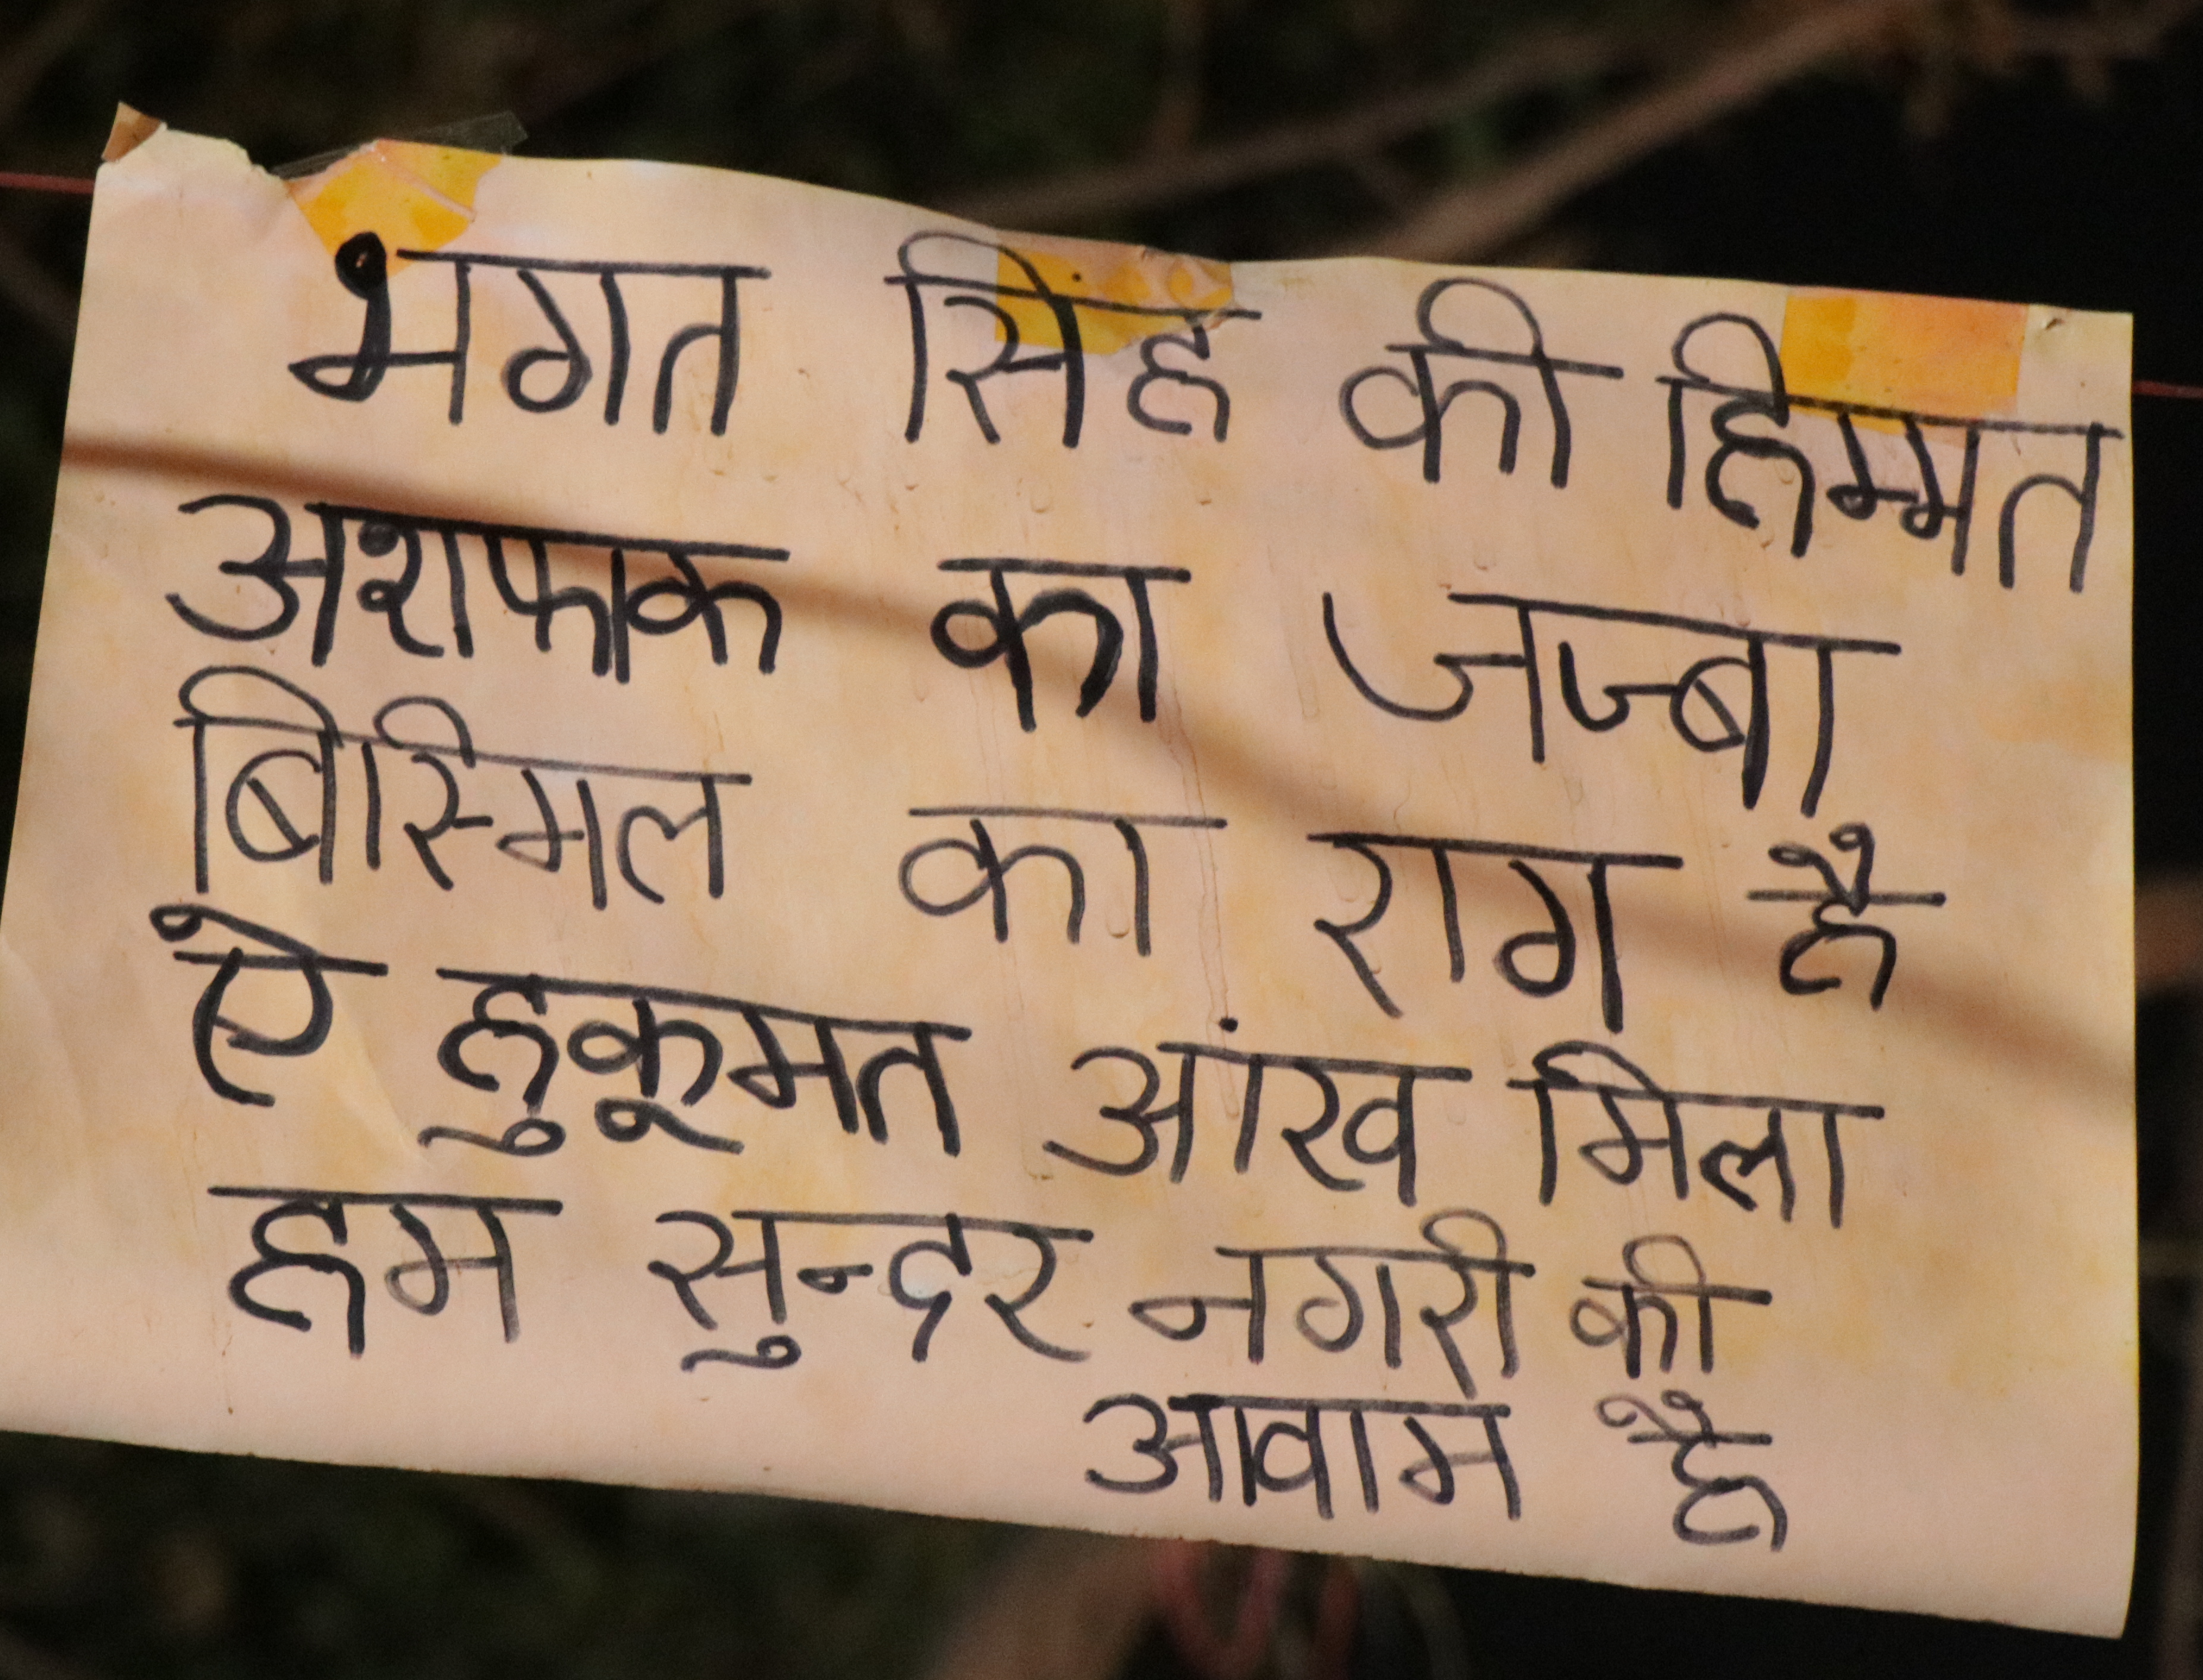 भगत सिंह की हिम्मत
अशफाक का जज्बा
बिास्मिल का राग है
ऐ हुकूमत आंख मिला
हम सुन्दर नगरी की
आवाम है